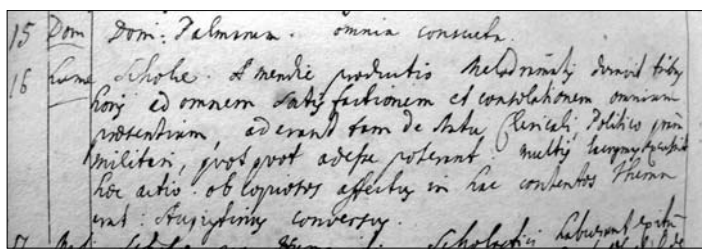 15 Dom Dom: Palmarum. omnia consueta.
16 Lunae Scholae. A meridie productio Melodramatis duravit tribus
horis ad omnem satisfactionem et consolationem omnium
praesentium, aderant tam de statu Clericali, Politico quam
militari, quot quot adesse poterant. multis lacrymas
haec actio ob copiosos affectus in hac contentos Thema
erat: Augustinus conversus.
17 Scholae Scholastici laborarunt